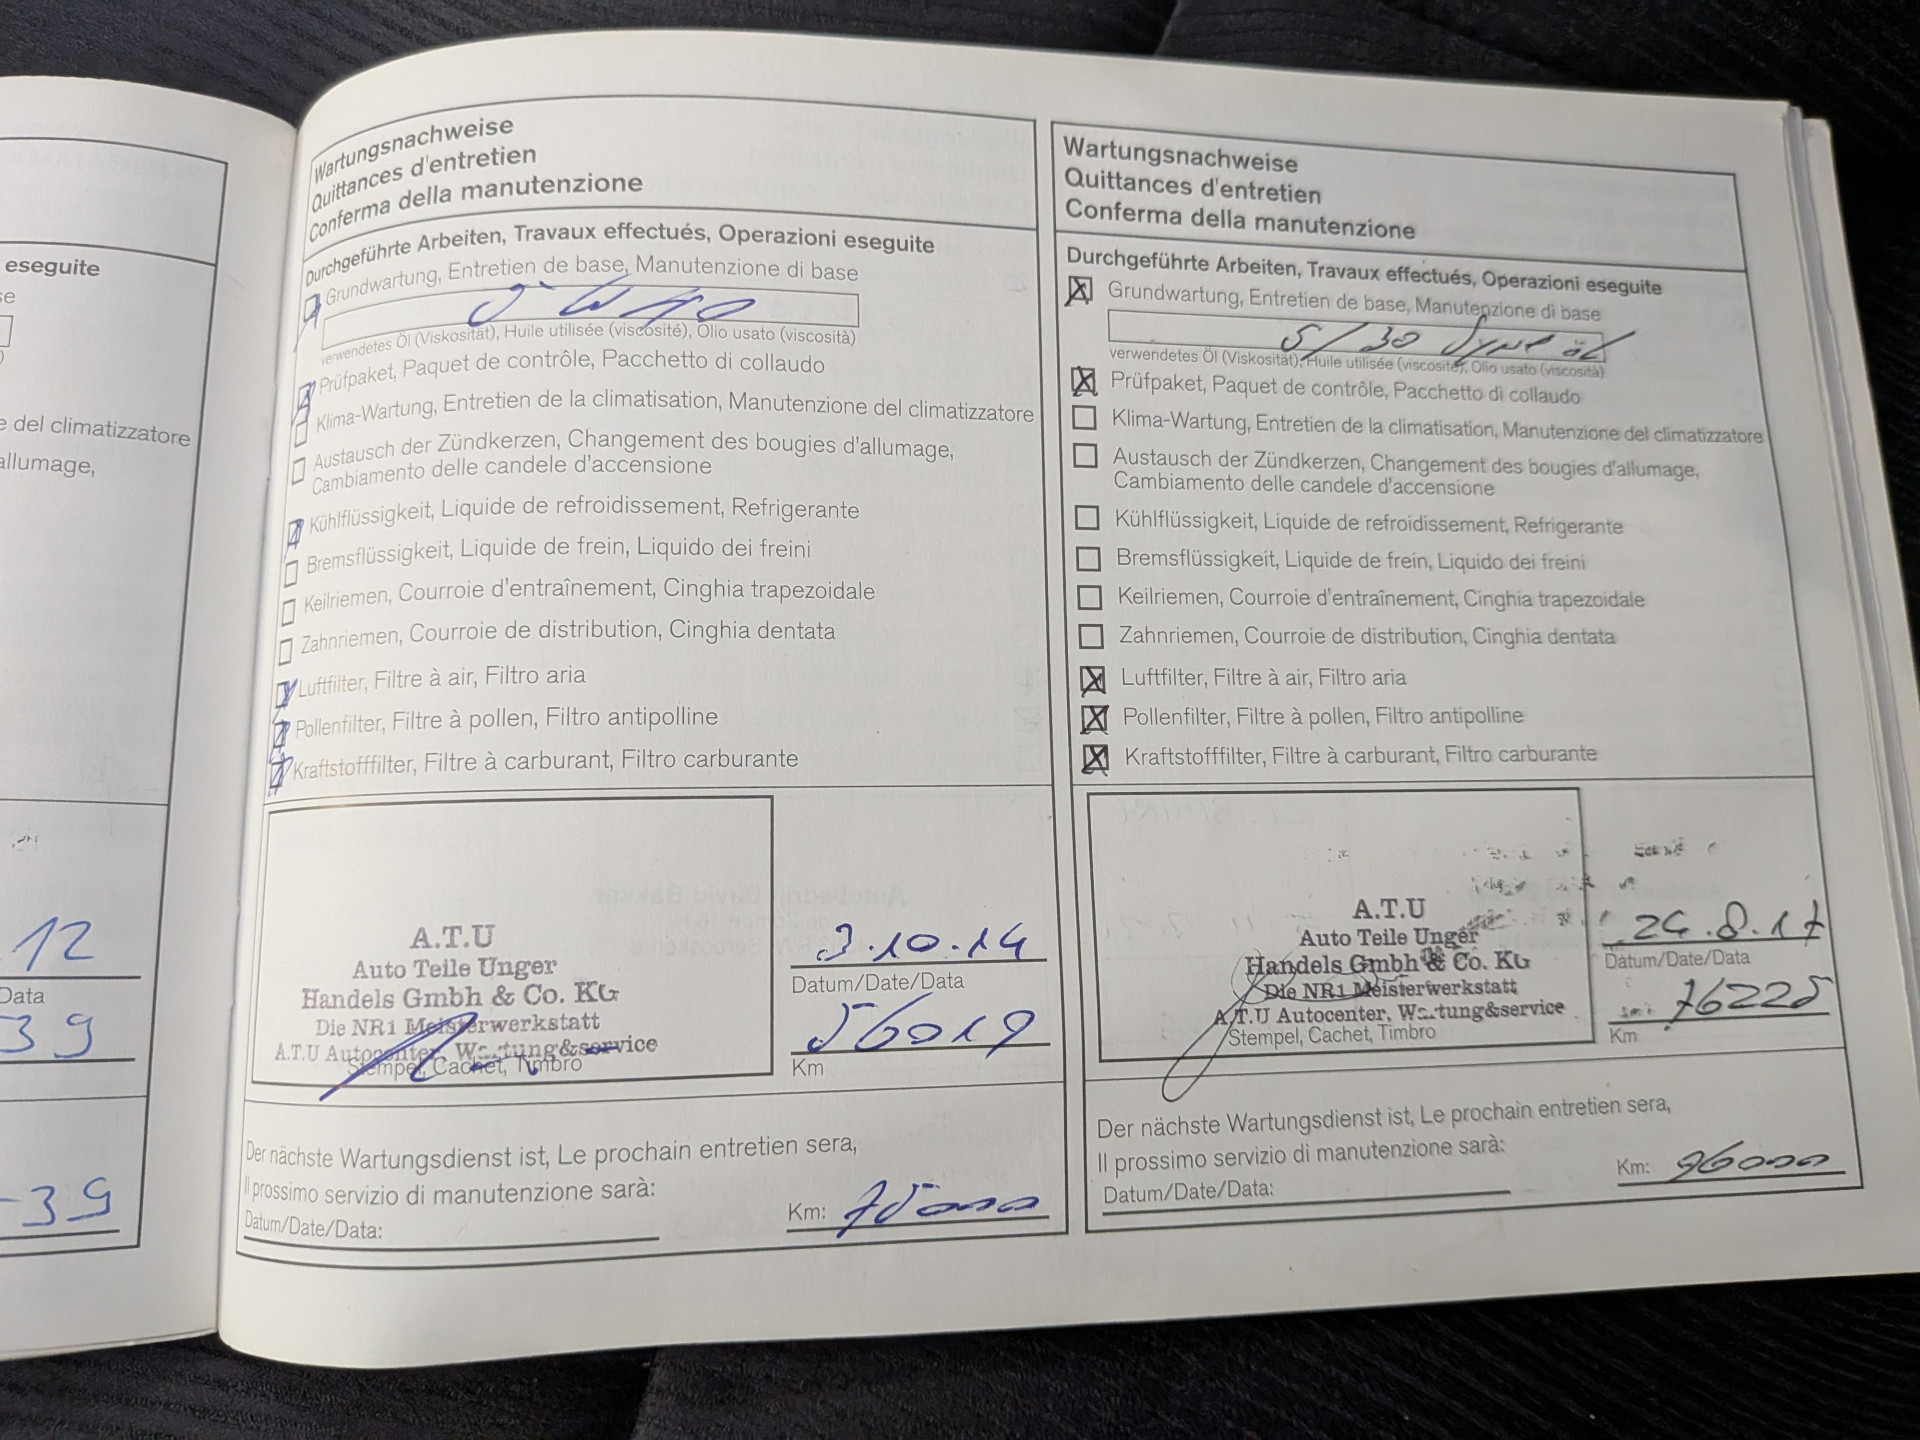 eseguite
se
e del climatizzatore
allumage,
12
Data
39
-39
Wartungsnachweise
Quittances d'entretien
Conferma della manutenzione
Durchgeführte Arbeiten, Travaux effectués, Operazioni eseguite
Grundwartung, Entretien de base, Manutenzione di base
verwendetes Öl (Viskosität), Huile utilisée (viscosité), Olio usato (viscosità)
Prüfpaket, Paquet de contrôle, Pacchetto di collaudo
Klima-Wartung, Entretien de la climatisation, Manutenzione del climatizzatore
Austausch der Zündkerzen, Changement des bougies d'allumage,
Cambiamento delle candele d'accensione
Kühlflüssigkeit, Liquide de refroidissement, Refrigerante
Bremsflüssigkeit, Liquide de frein, Liquido dei freini
Keilriemen, Courroie d'entraînement, Cinghia trapezoidale
Zahnriemen, Courroie de distribution, Cinghia dentata
Luftfilter, Filtre à air, Filtro aria
Pollenfilter, Filtre à pollen, Filtro antipolline
Kraftstofffilter, Filtre à carburant, Filtro carburante
A.T.U
Auto Teile Unger
Handels Gmbh & Co. KG
Die NR1 Meisterwerkstatt
A.T.U Autocenter, Wartung&service
Stempel, Cachet, Timbro
3.10.14
Datum/Date/Data
56019
Km
Der nächste Wartungsdienst ist, Le prochain entretien sera,
Il prossimo servizio di manutenzione sarà:
Datum/Date/Data:
Km: 75000
Wartungsnachweise
Quittances d'entretien
Conferma della manutenzione
Durchgeführte Arbeiten, Travaux effectués, Operazioni eseguite
Grundwartung, Entretien de base, Manutenzione di base
5/30 Synt öl
verwendetes Öl (Viskosität), Huile utilisée (viscosité), Olio usato (viscosità)
Prüfpaket, Paquet de contrôle, Pacchetto di collaudo
Klima-Wartung, Entretien de la climatisation, Manutenzione del climatizzatore
Austausch der Zündkerzen, Changement des bougies d'allumage,
Cambiamento delle candele d'accensione
Kühlflüssigkeit, Liquide de refroidissement, Refrigerante
Bremsflüssigkeit, Liquide de frein, Liquido dei freini
Keilriemen, Courroie d'entraînement, Cinghia trapezoidale
Zahnriemen, Courroie de distribution, Cinghia dentata
Luftfilter, Filtre à air, Filtro aria
Pollenfilter, Filtre à pollen, Filtro antipolline
Kraftstofffilter, Filtre à carburant, Filtro carburante
A.T.U
Auto Teile Unger
Handels Gmbh & Co. KG
Die NR1 Meisterwerkstatt
A.T.U Autocenter, Wartung&service
Stempel, Cachet, Timbro
24.8.17
Datum/Date/Data
76225
Km
Der nächste Wartungsdienst ist, Le prochain entretien sera,
Il prossimo servizio di manutenzione sarà:
Datum/Date/Data:
Km: 96000